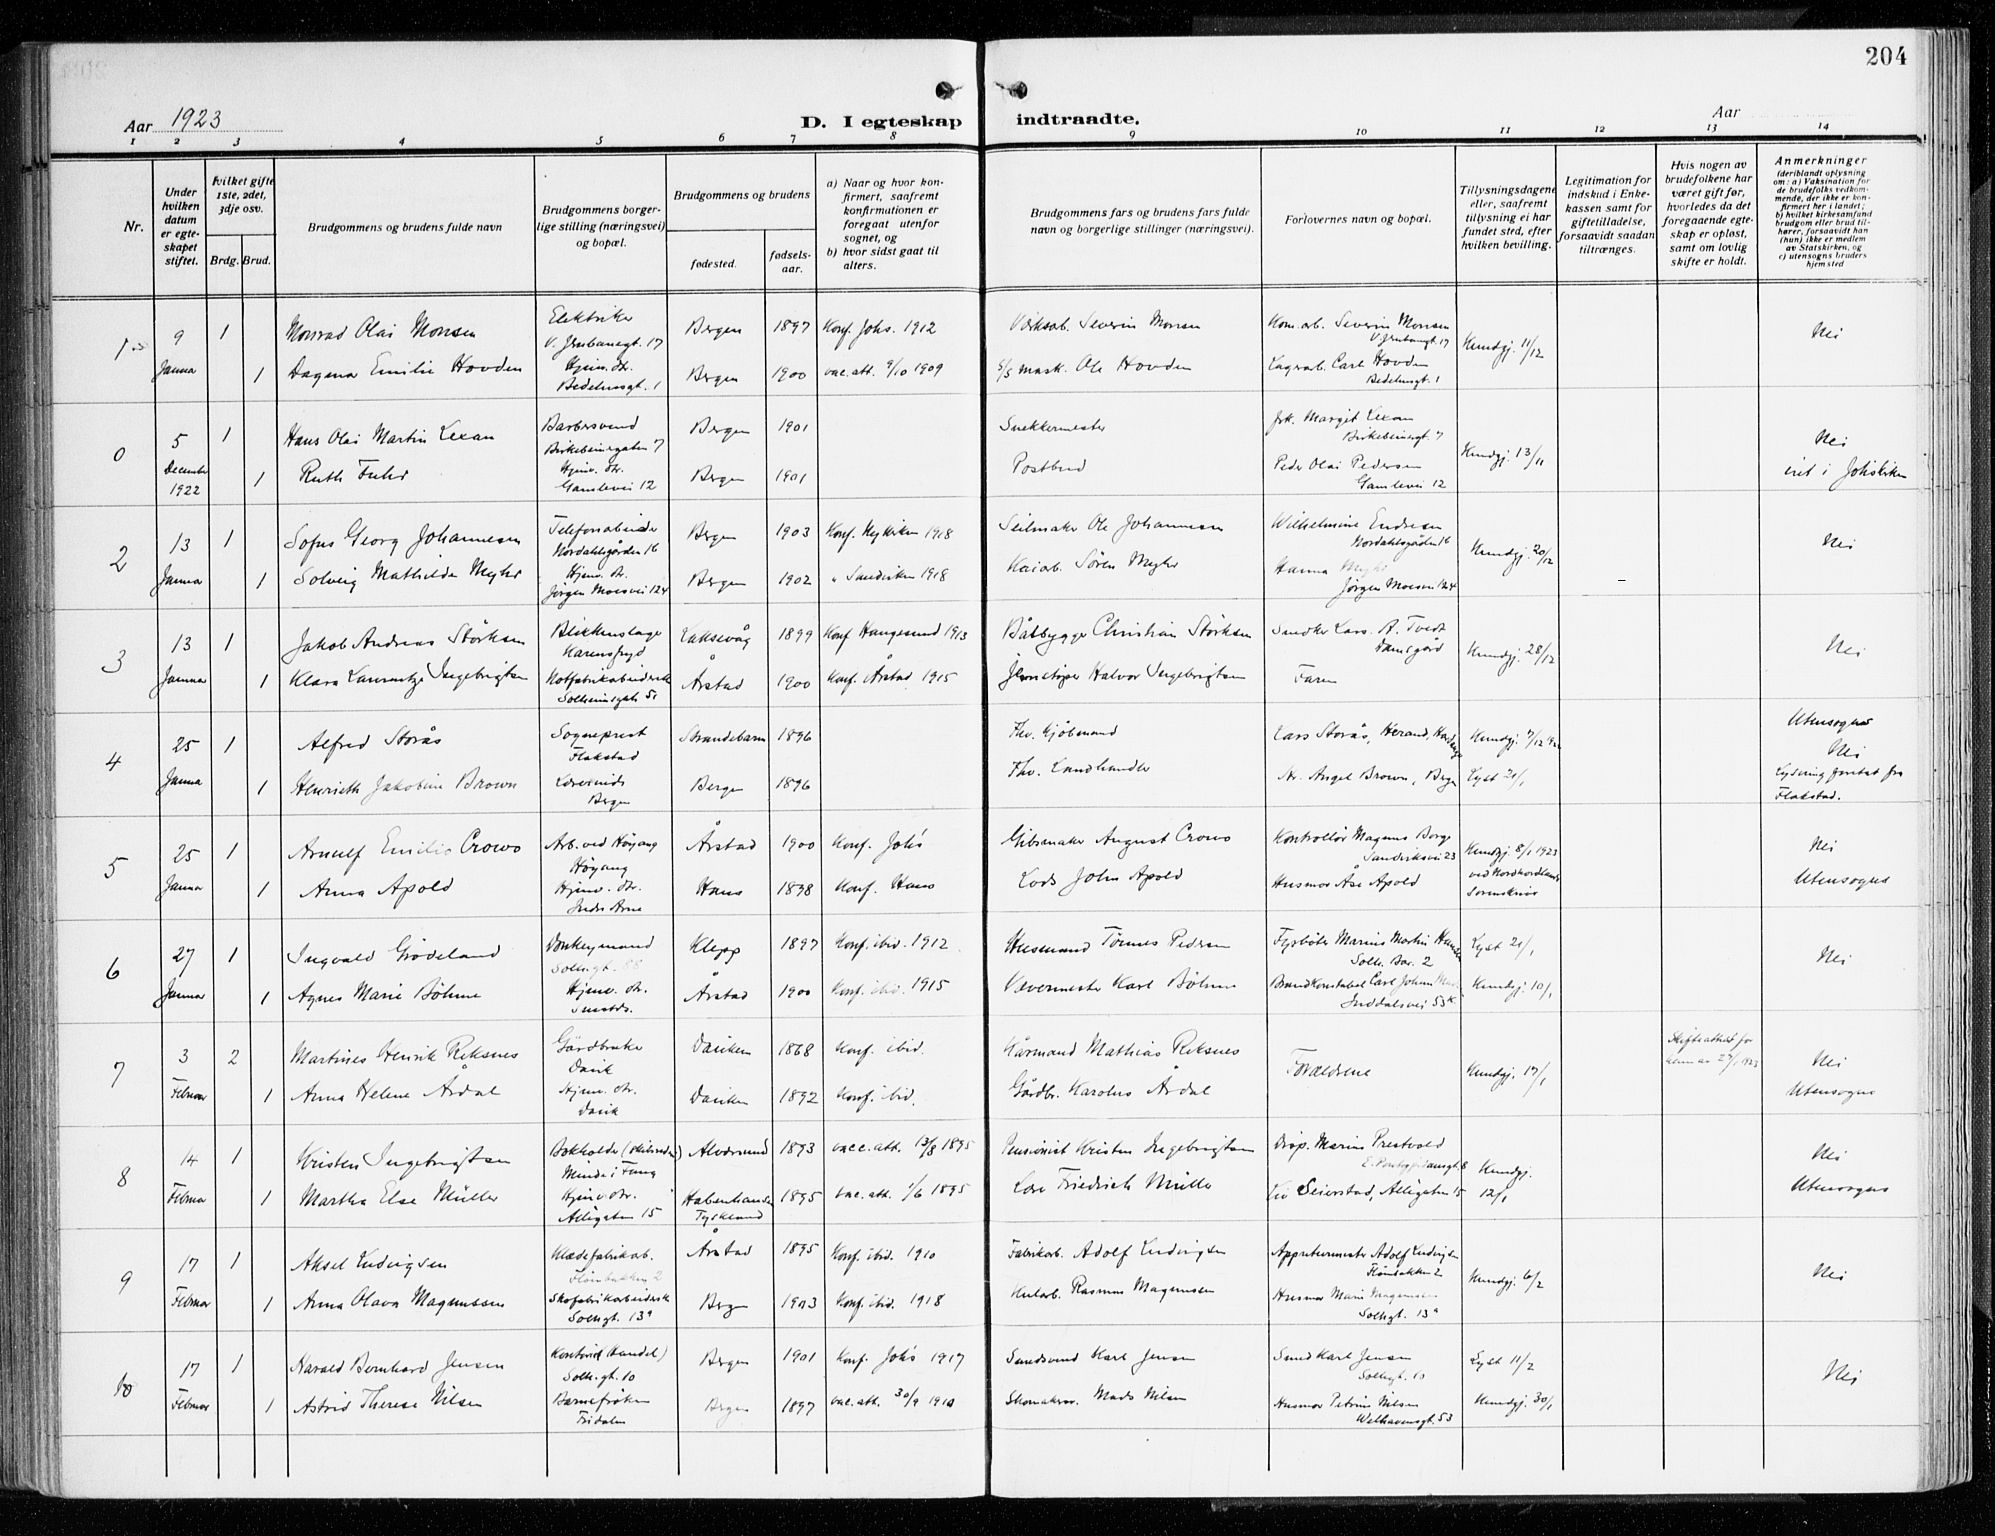 204
Aar 1923
D. I egteskap indtraadte.
Aar
1 2 3 4 5 6 7 8 9 10 11 12 13 14
Nr.
Under hvilken datum er egteskapet stiftet.
hvilket gifte 1ste, 2det, 3dje osv.
Brdg. Brud.
Brudgommens og brudens fulde navn
Brudgommens borgerlige stilling (næringsvei) og bopæl.
Brudgommens og brudens
fødested.
fødselsaar.
a) Naar og hvor konfirmert, saafremt konfirmationen er foregaat utenfor sognet, og
b) hvor sidst gaat til alters.
Brudgommens fars og brudens fars fulde navn og borgerlige stillinger (næringsvei).
Forlovernes navn og bopæl.
Tillysningsdagene eller, saafremt tillysning ei har fundet sted, efter hvilken bevilling.
Legitimation for indskud i Enkekassen samt for giftetilladelse, forsaavidt saadan tiltrænges.
Hvis nogen av brudefolkene har været gift før, hvorledes da det foregaaende egteskap er opløst, samt om lovlig skifte er holdt.
Anmerkninger
(deriblandt oplysning om: a) Vaksination for de brudefolks vedkommende, der ikke er konfirmert her i landet;
b) hvilket kirkesamfund brudgom eller brud tilhører, forsaavidt han (hun) ikke er medlem av Statskirken, og
c) utensogns bruders hjemsted
1 9 1 Monrad Olai Monsen Elektriker Bergen 1897 Konf. Johs. 1912 Verksarb. Severin Monsen Severin Monsen Kundgj. 11/12 Nei
Januar 1 Dagmar Emilie Hovden Hjemv. dtr. Bedehusgt. 1 Bergen 1900 vac.att. 9/10 1909 Ole Hovden Lagerarb. Carl Hovden Bedehusgt. 1
0 5 1 Hans Olai Martin Lexau Barbersvend Birkebeinergaten 7 Bergen 1901 Snekkermester frk. Margit Lexau Birkebeinergt. 7 Kundgj. 13/11 Nei
December 1922 1 Ruth Hjemv. dtr. Gamlevei 12 Bergen 1901 Postbud Peder Olai Pedersen Gamlevei 12 viet i Johskirken
2 13 1 Sofus Georg Johannesen Telefonarbeider Nordahlsgården 16 Bergen 1903 Konf. Nykirken 1918 Seilmaker Ole Johannesen Wilhelmine Endresen Nordahlsgården 16 Kundgj. 20/12 Nei
Januar 1 Solveig Mathilde Myhr Hjemv. dtr. Jørgen Moesvei 124 Bergen 1902 " Sandviken 1918 Kaiarb. Søren Myhr Hanna Myhr Jørgen Moesvei 124
3 13 1 Jakob Andreas Størksen Blikkenslager Laksevåg 1899 Konf. Haugesund 1913 Båtbygger Christian Størksen Snedker Lars A. Tvedt Damsgård Kundgj. 28/12 Nei
Januar 1 Klara Laurentze Ingebrigtsen Notfabrikarbeiderske Solheimsgate 51 Årstad 1900 Konf. Årstad 1915 Halvor Ingebrigtsen Faren
4 25 1 Alfred Storås Sogneprest Flakstad Strandebarm 1896 Fhv. Kjøbmand Lars Storås, Herand, Kundgj. Utensogns Nei
Januar 1 Henriette Jakobine Brown Lærerinde Bergen Bergen 1896 Fhv. Landhandler Angel Brown, Bergen Lyst 21/1 Lysning foretat fra Flakstad.
5 25 1 Arnulf Emilio Crowo Arb. ved Høyang Høyang Årstad 1900 Konf. Johs Gibsmaker August Crowo Kontrollør Magnus Borge Sandviksvei 23 Kundgj. 8/1 1923 Nei
Januar 1 Anna Apold Hjemv. dtr. Indre Arne Haus 1898 Konf. Haus Lods John Apold Husmor Åse Apold ved Nordhordland Sorenskriver Utensogns
6 27 1 Ingvald Grødeland Donkeymand Solhgt. 88 Klepp 1897 Konf. ibid. 1912 Husmand Tønnes Pedersen Fyrbøter Marius Martin Solh. Bar. 2 Lyst 21/1 Nei
Januar 1 Agnes Marie Böhme Hjemv. dtr. Årstad 1900 Konf. ibid. 1915 Vævermester Karl Böhme Brandkonstabel Carl Johan Inddalsvei 53 Kundgj. 10/1
7 3 2 Martines Henrik Reksnes Gårdbruker Davik Daviken 1868 Konf. ibid. Gårmand Mathias Reksnes Forældrene Kundgj. 17/1 Skifteattest for 1923 Nei
Februar 1 Anna Helene Årdal Hjemv. dtr. Davik Daviken 1892 Konf. ibid. Gårdbr. Karolus Årdal Utensogns
8 14 1 Kristen Ingebrigtsen Bokholder Minde i Fana Alversund 1893 vacc. att. 13/8 1895 Pensionist Kristen Ingebrigtsen Disp. Marius Prestvold Kundgj. Nei
Februar 1 Martha Else Müller Hjemv. dtr. Allégaten 15 Tyskland 1895 vac. att. 1/6 1895 Friedrich Müller Seierstad, Allégaten 15 12/1 Utensogns
9 17 1 Aksel Ludvigsen Klædefabrikarb. Årstad 1895 Konf. ibid. 1910 Fabrikarb. Adolf Ludvigsen Appreturmester Adolf Ludvigsen Kundgj. 6/2 Nei
Februar 1 Anna Olava Magnussen Skofabrikarbeiderske Solhgt. 13a Bergen 1903 Konf. ibid. 1918 Rasmus Magnussen Husmor Marie Magnussen Solhgt. 13a
10 17 1 Harald Bernhard Jensen Kontorist (handel) Solh.gt. 10 Bergen 1901 Konf. Johs 1917 Karl Jensen Karl Jensen Solhgt. 10 Lyst 11/2 Nei
Februar 1 Astrid Therese Nilsen Barnefrøken Fridalen Bergen 1897 vac. att. 30/9 1910 Skomakersv. Mads Nilsen Husmor Petrine Nilsen Welhavensgt. 53 Kundgj. 30/1